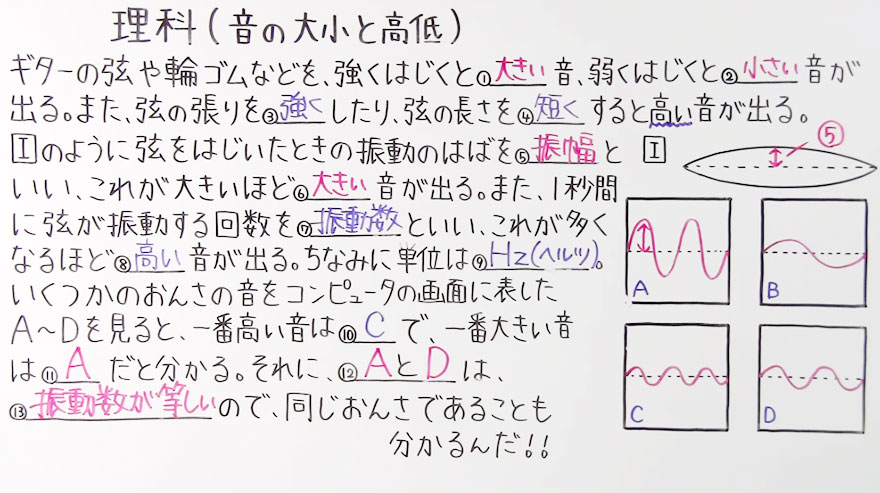 理科(音の大小と高低)
ギターの弦や輪ゴムなどを、強くはじくと①大きい音、弱くはじくと②小さい音が
出る。また、弦の張りを③強くしたり、弦の長さを④短くすると高い音が出る。
Iのように弦をはじいたときの振動のはばを⑤振幅と
いい、これが大きいほど⑥大きい音が出る。また、1秒間
に弦が振動する回数を⑦振動数といい、これが多く
なるほど⑧高い音が出る。ちなみに単位は⑨Hz(ヘルツ)。
いくつかのおんさの音をコンピュータの画面に表した
A～Dを見ると、一番高い音は⑩Cで、一番大きい音
は⑪Aだと分かる。それに、⑫AとDは、
⑬振動数が等しいので、同じおんさであることも
分かるんだ!!
I
⑤
A
B
C
D